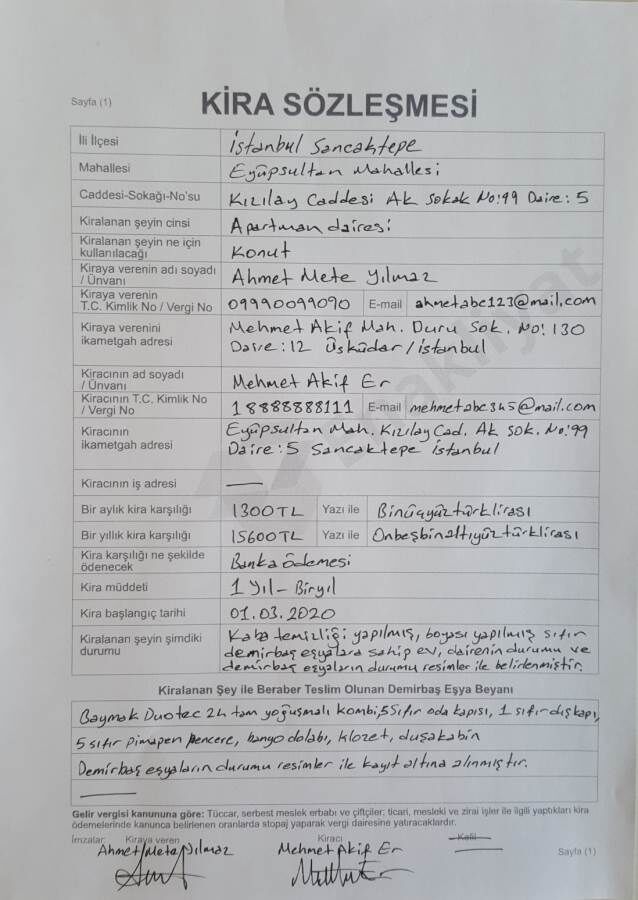 Sayfa (1)
KİRA SÖZLEŞMESİ
İli İlçesi İstanbul Sancaktepe
Mahallesi Eyüpsultan Mahallesi
Caddesi-Sokağı-No'su Kızılay Caddesi Ak Sokak No:99 Daire: 5
Kiralanan şeyin cinsi Apartman dairesi
Kiralanan şeyin ne için
kullanılacağı Konut
Kiraya verenin adı soyadı
/ Ünvanı Ahmet Mete Yılmaz
Kiraya verenin
T.C. Kimlik No / Vergi No 09990099090 E-mail ahmetabc123@mail.com
Kiraya verenini
ikametgah adresi
Mehmet Akif Mah. Duru Sok. No: 130
Daire: 12 Üsküdar/istanbul
Kiracının ad soyadı
/ Ünvanı Mehmet Akif Er
Kiracının T.C. Kimlik No
/ Vergi No 18888888111 E-mail mehmetabc345@mail.com
Kiracının
ikametgah adresi
Eyüpsultan Mah. Kızılay Cad. Ak Sok. No:99
Daire: 5 Sancaktepe istanbul
Kiracının iş adresi
Bir aylık kira karşılığı 1300TL Yazı ile Binüçyüztürklirası
Bir yıllık kira karşılığı 15600TL Yazı ile Onbeşbinaltıyüztürklirası
Kira karşılığı ne şekilde
ödenecek Banka ödemesi
Kira müddeti 1 Yıl - Biryıl
Kira başlangıç tarihi 01.03.2020
Kiralanan şeyin şimdiki
durumu
Kaba temizliği yapılmış, boyası yapılmış sıfır
demirbaş eşyalara sahip ev, dairenin durumu ve
demirbaş eşyaların durumu resimler ile belirlenmiştir.
Kiralanan Şey ile Beraber Teslim Olunan Demirbaş Eşya Beyanı
Baymak Duotec 24 tam yoğuşmalı kombi, 5 sıfır oda kapısı, 1 sıfır dış kapı,
5 sıfır pimapen pencere, banyo dolabı, klozet, duşakabin
Demirbaş eşyaların durumu resimler ile kayıt altına alınmıştır.
Gelir vergisi kanununa göre: Tüccar, serbest meslek erbabı ve çiftçiler; ticari, mesleki ve zirai işler ile ilgili yaptıkları kira
ödemelerinde kanunca belirlenen oranlarda stopaj yaparak vergi dairesine yatıracaklardır.
İmzalar Kiraya veren Kiracı Kefil
Ahmet Mete Yılmaz Mehmet Akif Er
Sayfa (1)